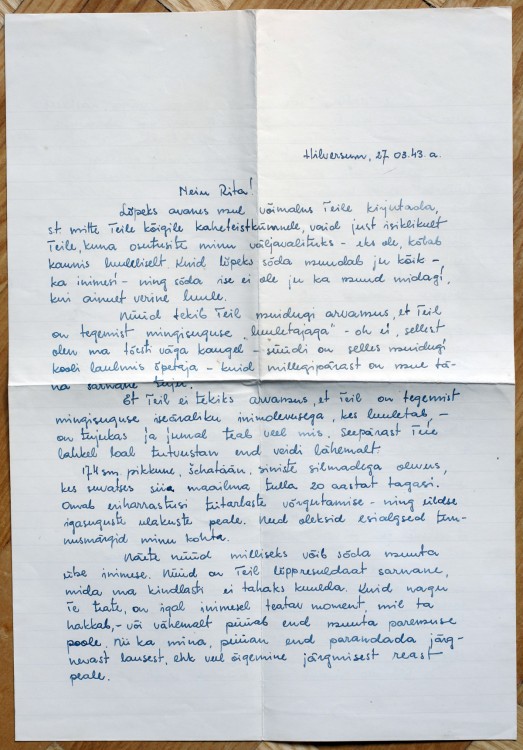 Hilversum, 27 03.43.a.
Neiu Rita!
Lõpeks avanes mul võimalus Teile kirjutada,
st. mitte Teile kõigile kaheteistkümnele, vaid just isiklikult
Teile, kuna osutusite minu väljavalituiks – eks ole, kõlab
kaunis luuleliselt. Kuid lõpeks sõda muudab ju kõik –
ka inimesi – ning sõda ise ei ole ju ka muud midagi,
kui ainult verine luule.
Nüüd tekib Teil muidugi arvamus, et Teil
on tegemist mingisuguse „luuletajaga" – oh ei, sellest
olen ma tõesti väga kaugel – süüdi on selles muidugi
kooli laulmis õpetaja – kuid millegipärast on mul tä-
na sarnane tuju.
Et Teil ei tekiks arvamus, et Teil on tegemist
mingisuguse iseäraliku inimolevusega, kes luuletab, –
on tujukas ja jumal teab veel mis. Seepärast Teie
lahkel loal tutvustan end veidi lähemalt.
174 sm. pikkune, šatään, siniste silmadega olevus,
kes suvatses siia maailma tulla 20 aastat tagasi.
Omab eriharrastusi tütarlaste võrgutamise – ning üldse
igasuguste ulakuste peale. Need oleksid esialgsed tun-
nusmärgid minu kohta.
Näete nüüd milliseks võib sõda muuta
ühe inimese. Nüüd on Teil lõppresuldaat sarnane,
mida ma kindlasti ei tahaks kuulda. Kuid nagu
Te teate, on igal inimesel teatav moment, mil ta
hakkab, – või vähemalt püüab end muuta paremuse
poole. Nii ka mina, püüan end parandada järg-
nevast lausest, ehk veel õigemine järgmisest reast
peale.